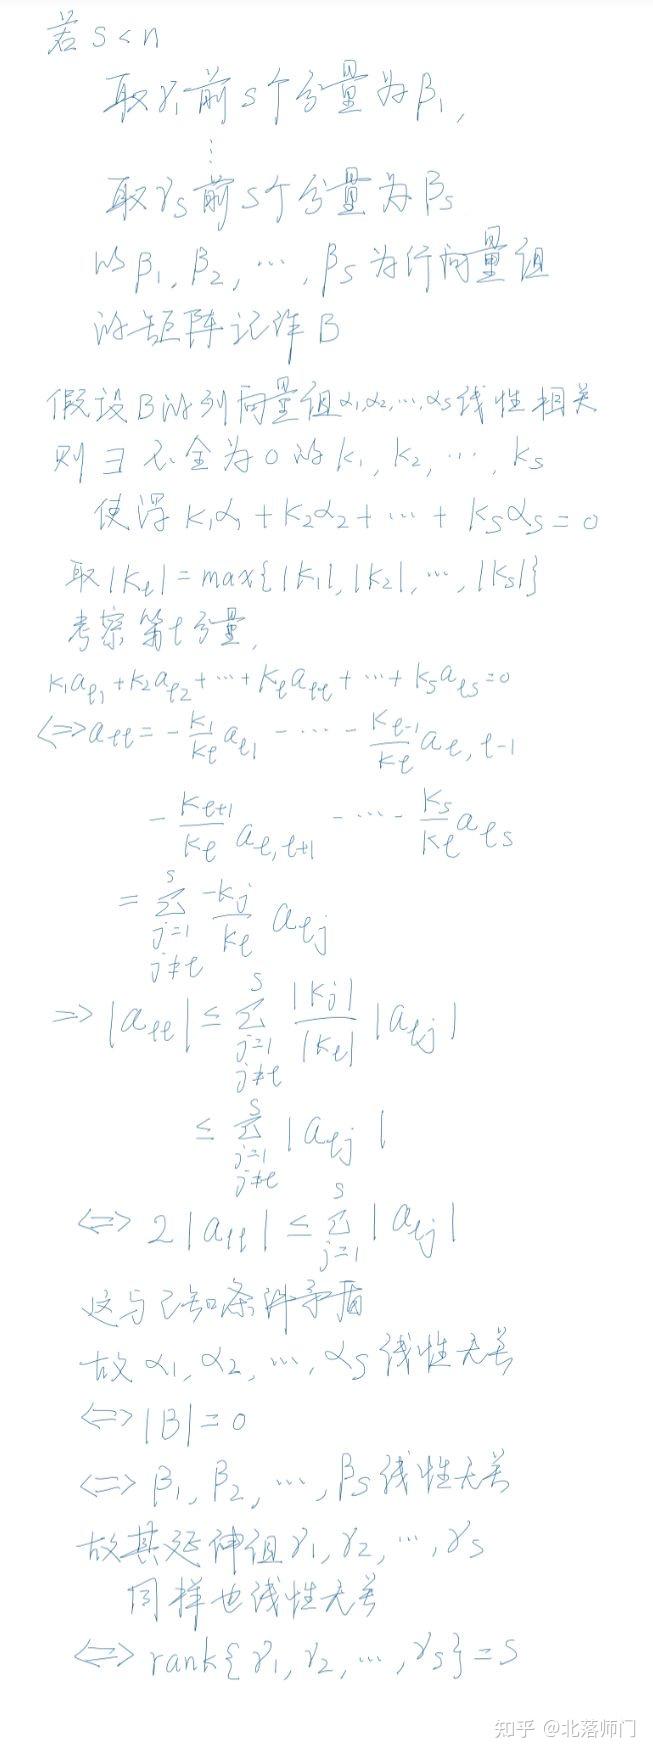 若 s < n
取γ₁前s个分量为β₁,
⋮
取γs前s个分量为βs
以β₁, β₂, ⋯, βs为行向量组
的矩阵记作B
假设B的列向量组α₁,α₂,⋯,αs线性相关
则∃不全为0的k₁, k₂, ⋯, ks
使得 k₁α₁ + k₂α₂ + ⋯ + ksαs = 0
取|kt| = max{|k₁|, |k₂|, ⋯, |ks|}
考察第t分量,
k₁a_{t1} + k₂a_{t2} + ⋯ + k_t a_{tt} + ⋯ + k_s a_{ts} = 0
⟺ a_{tt} = - \frac{k₁}{k_t} a_{t1} - ⋯ - \frac{k_{t-1}}{k_t} a_{t,t-1}
- \frac{k_{t+1}}{k_t} a_{t,t+1} - ⋯ - \frac{k_s}{k_t} a_{ts}
= \sum_{j=1, j≠t}^{s} \frac{-k_j}{k_t} a_{tj}
⟹ |a_{tt}| ≤ \sum_{j=1, j≠t}^{s} \frac{|k_j|}{|k_t|} |a_{tj}|
≤ \sum_{j=1, j≠t}^{s} |a_{tj}|
⟺ 2|a_{tt}| ≤ \sum_{j=1}^{s} |a_{tj}|
这与已知条件矛盾
故 α₁, α₂, ⋯, αs线性无关
⟺ |B| = 0
⟺ β₁, β₂, ⋯, βs线性无关
故其延伸组γ₁, γ₂, ⋯, γs
同样也线性无关
⟺ rank{γ₁, γ₂, ⋯, γs} = s
知乎 @北落师门